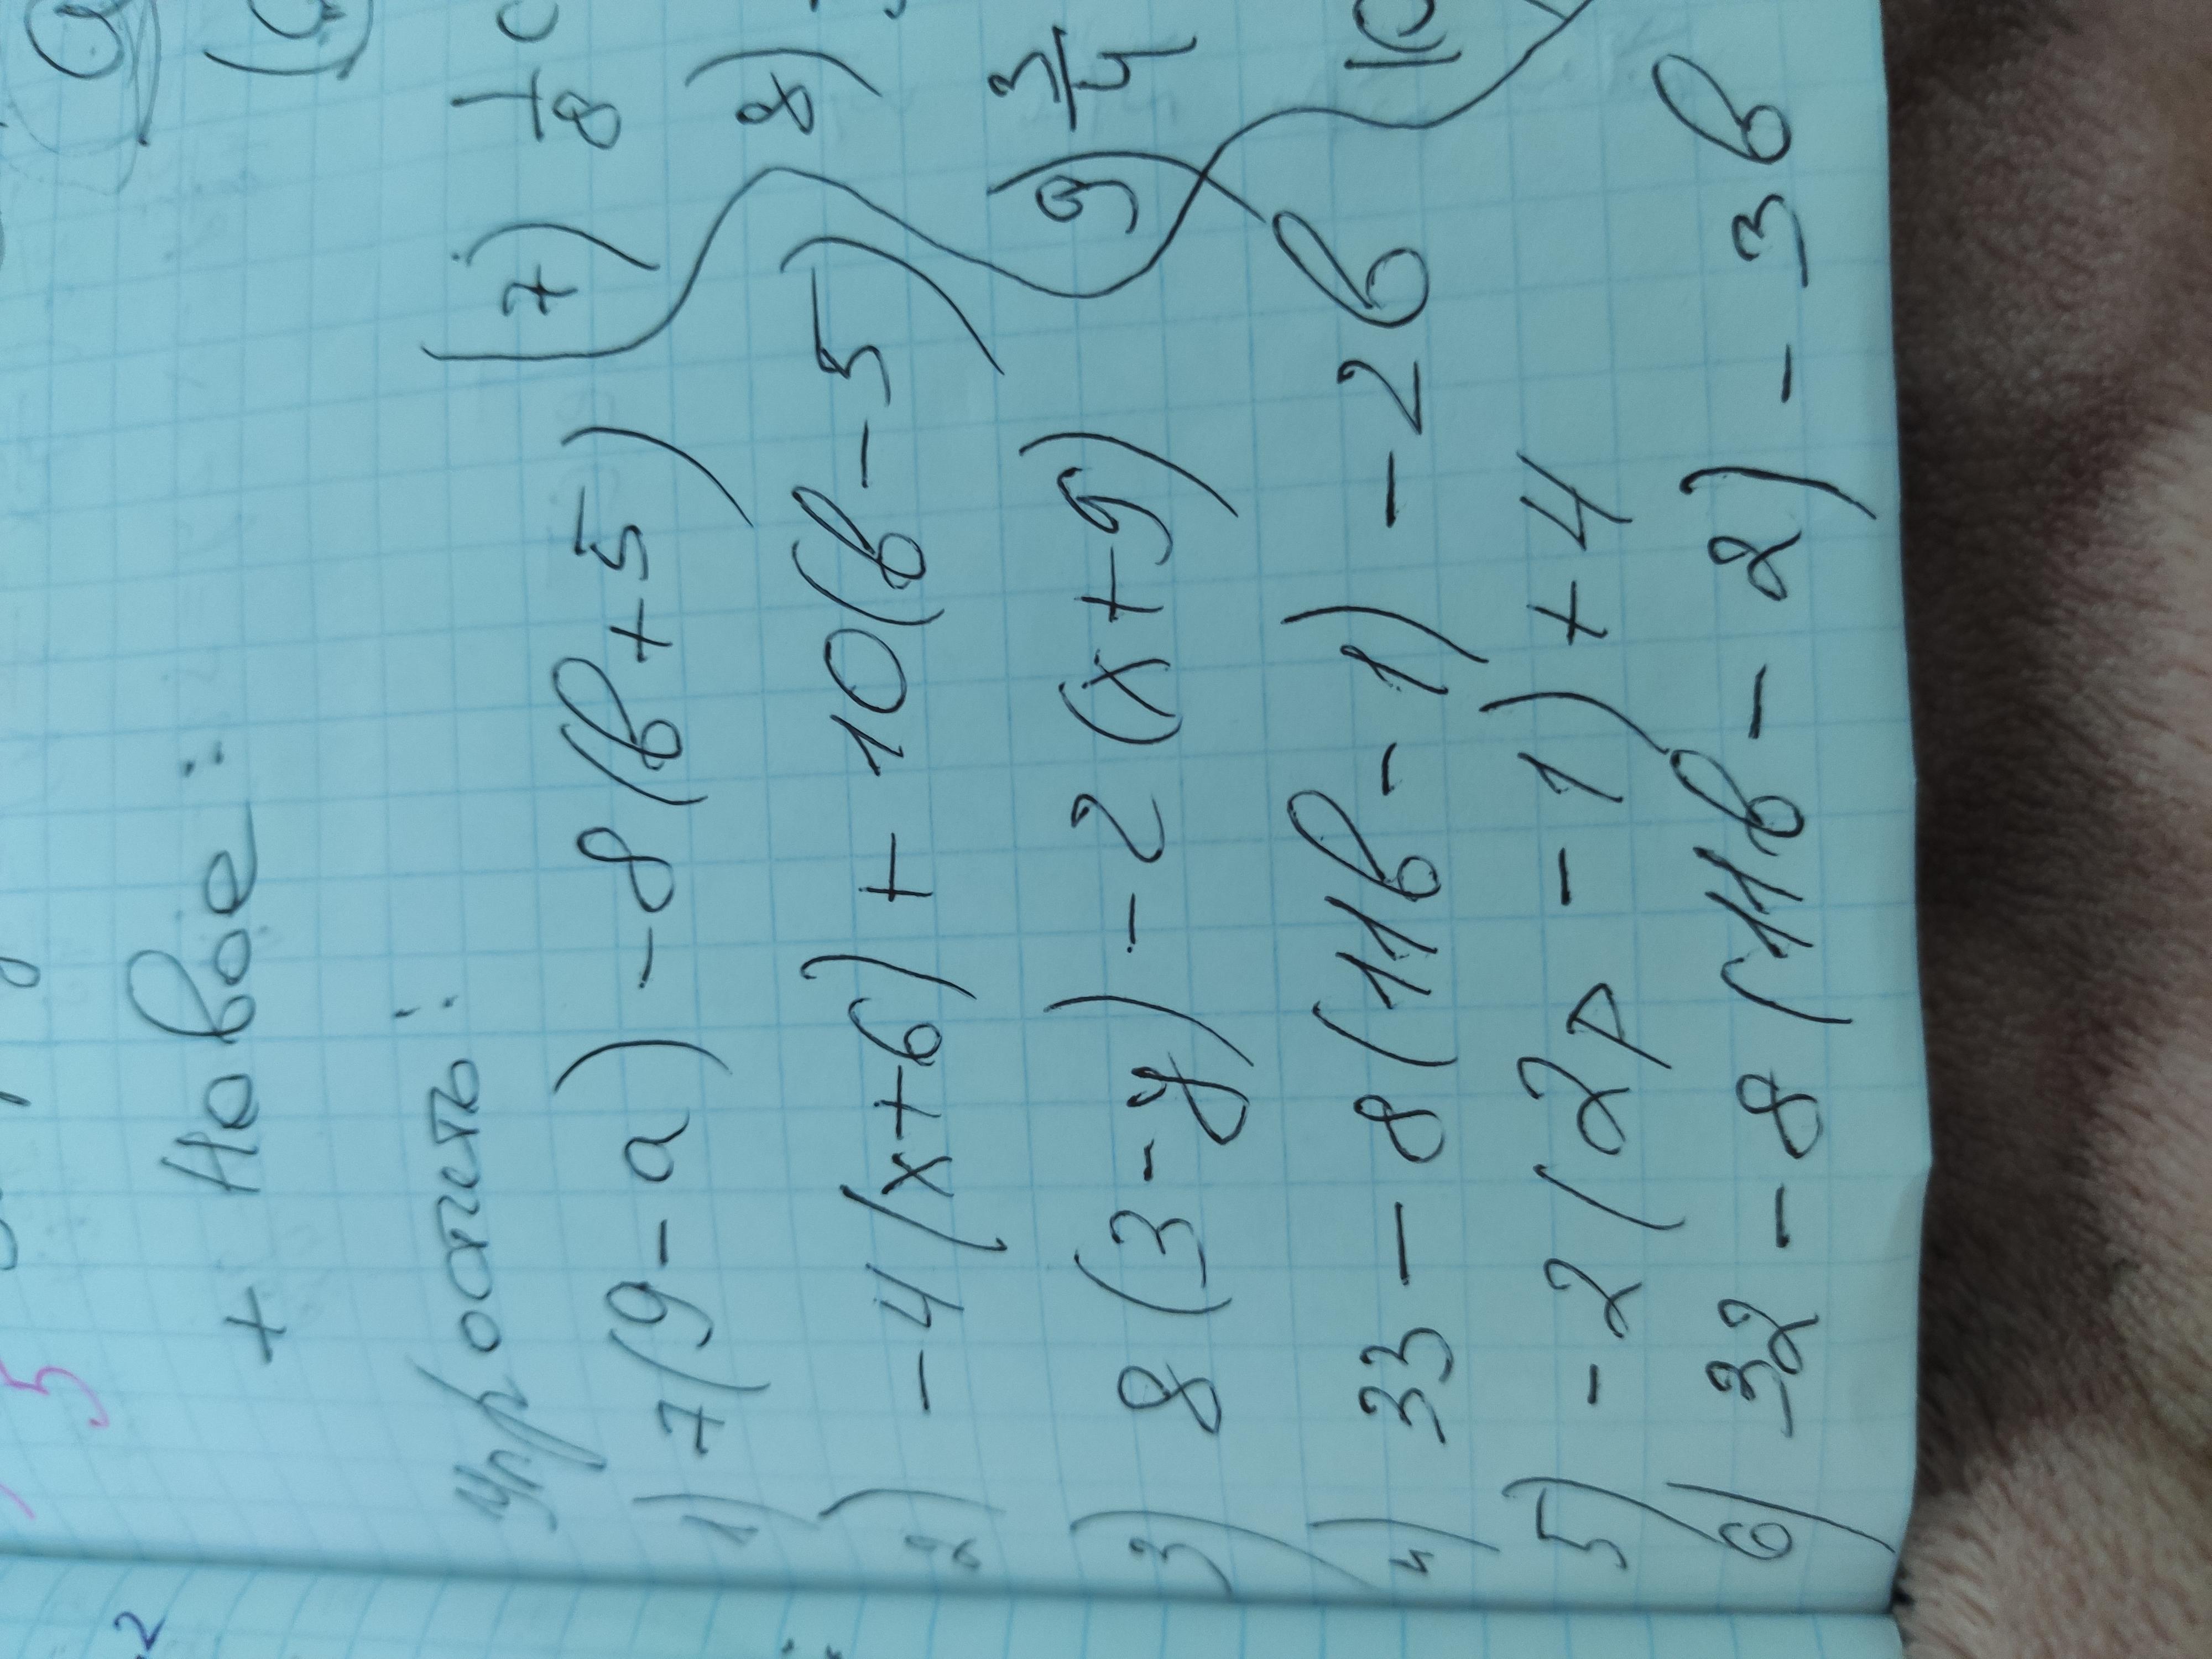 + Новое:
Упростить:
1) 7(9-a) -8(b+5)
2) -4(x+6) + 10(b-5)
3) 8(3-y) -2(x+9)
4) 33-8(11b-1) -2b
5) -2(2p-1)+4
6) 32-8(11b-2)-3b
7) 1/8
8)
9) 3/4
10
5
2